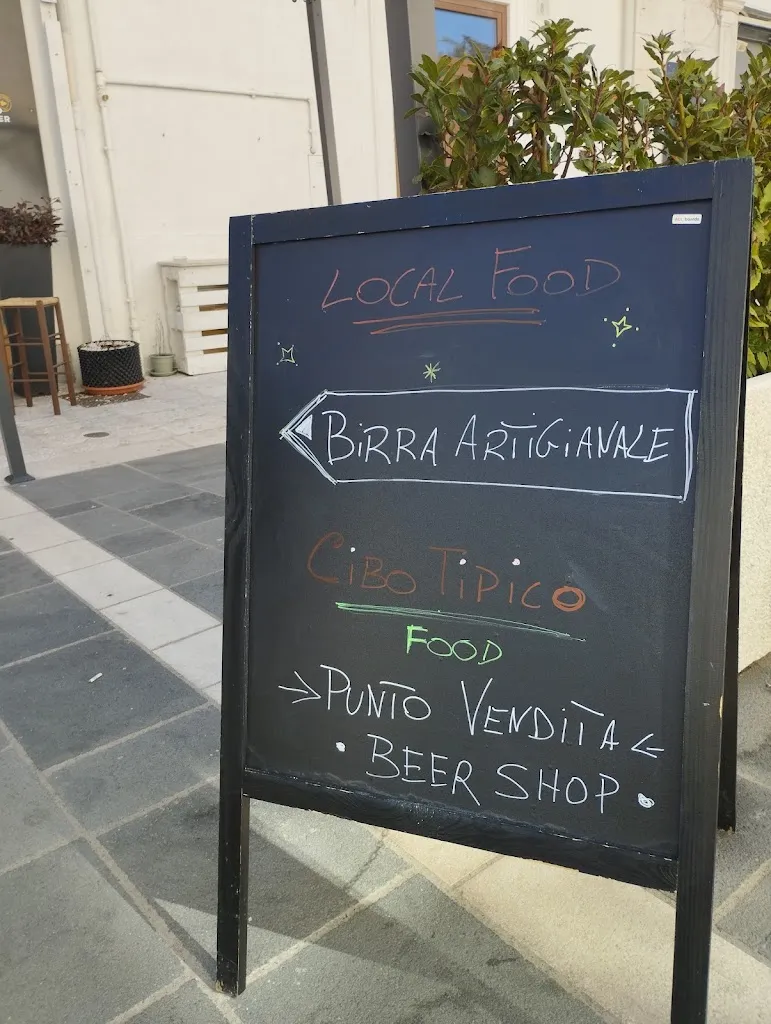 LOCAL FOOD
BIRRA ARTIGIANALE
CIBO TIPICO
FOOD
→PUNTO VENDITA←
• BEER SHOP •